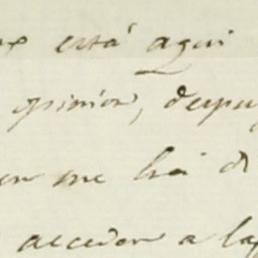 está aqui
opinion, despu
en me ha d
acceder a la